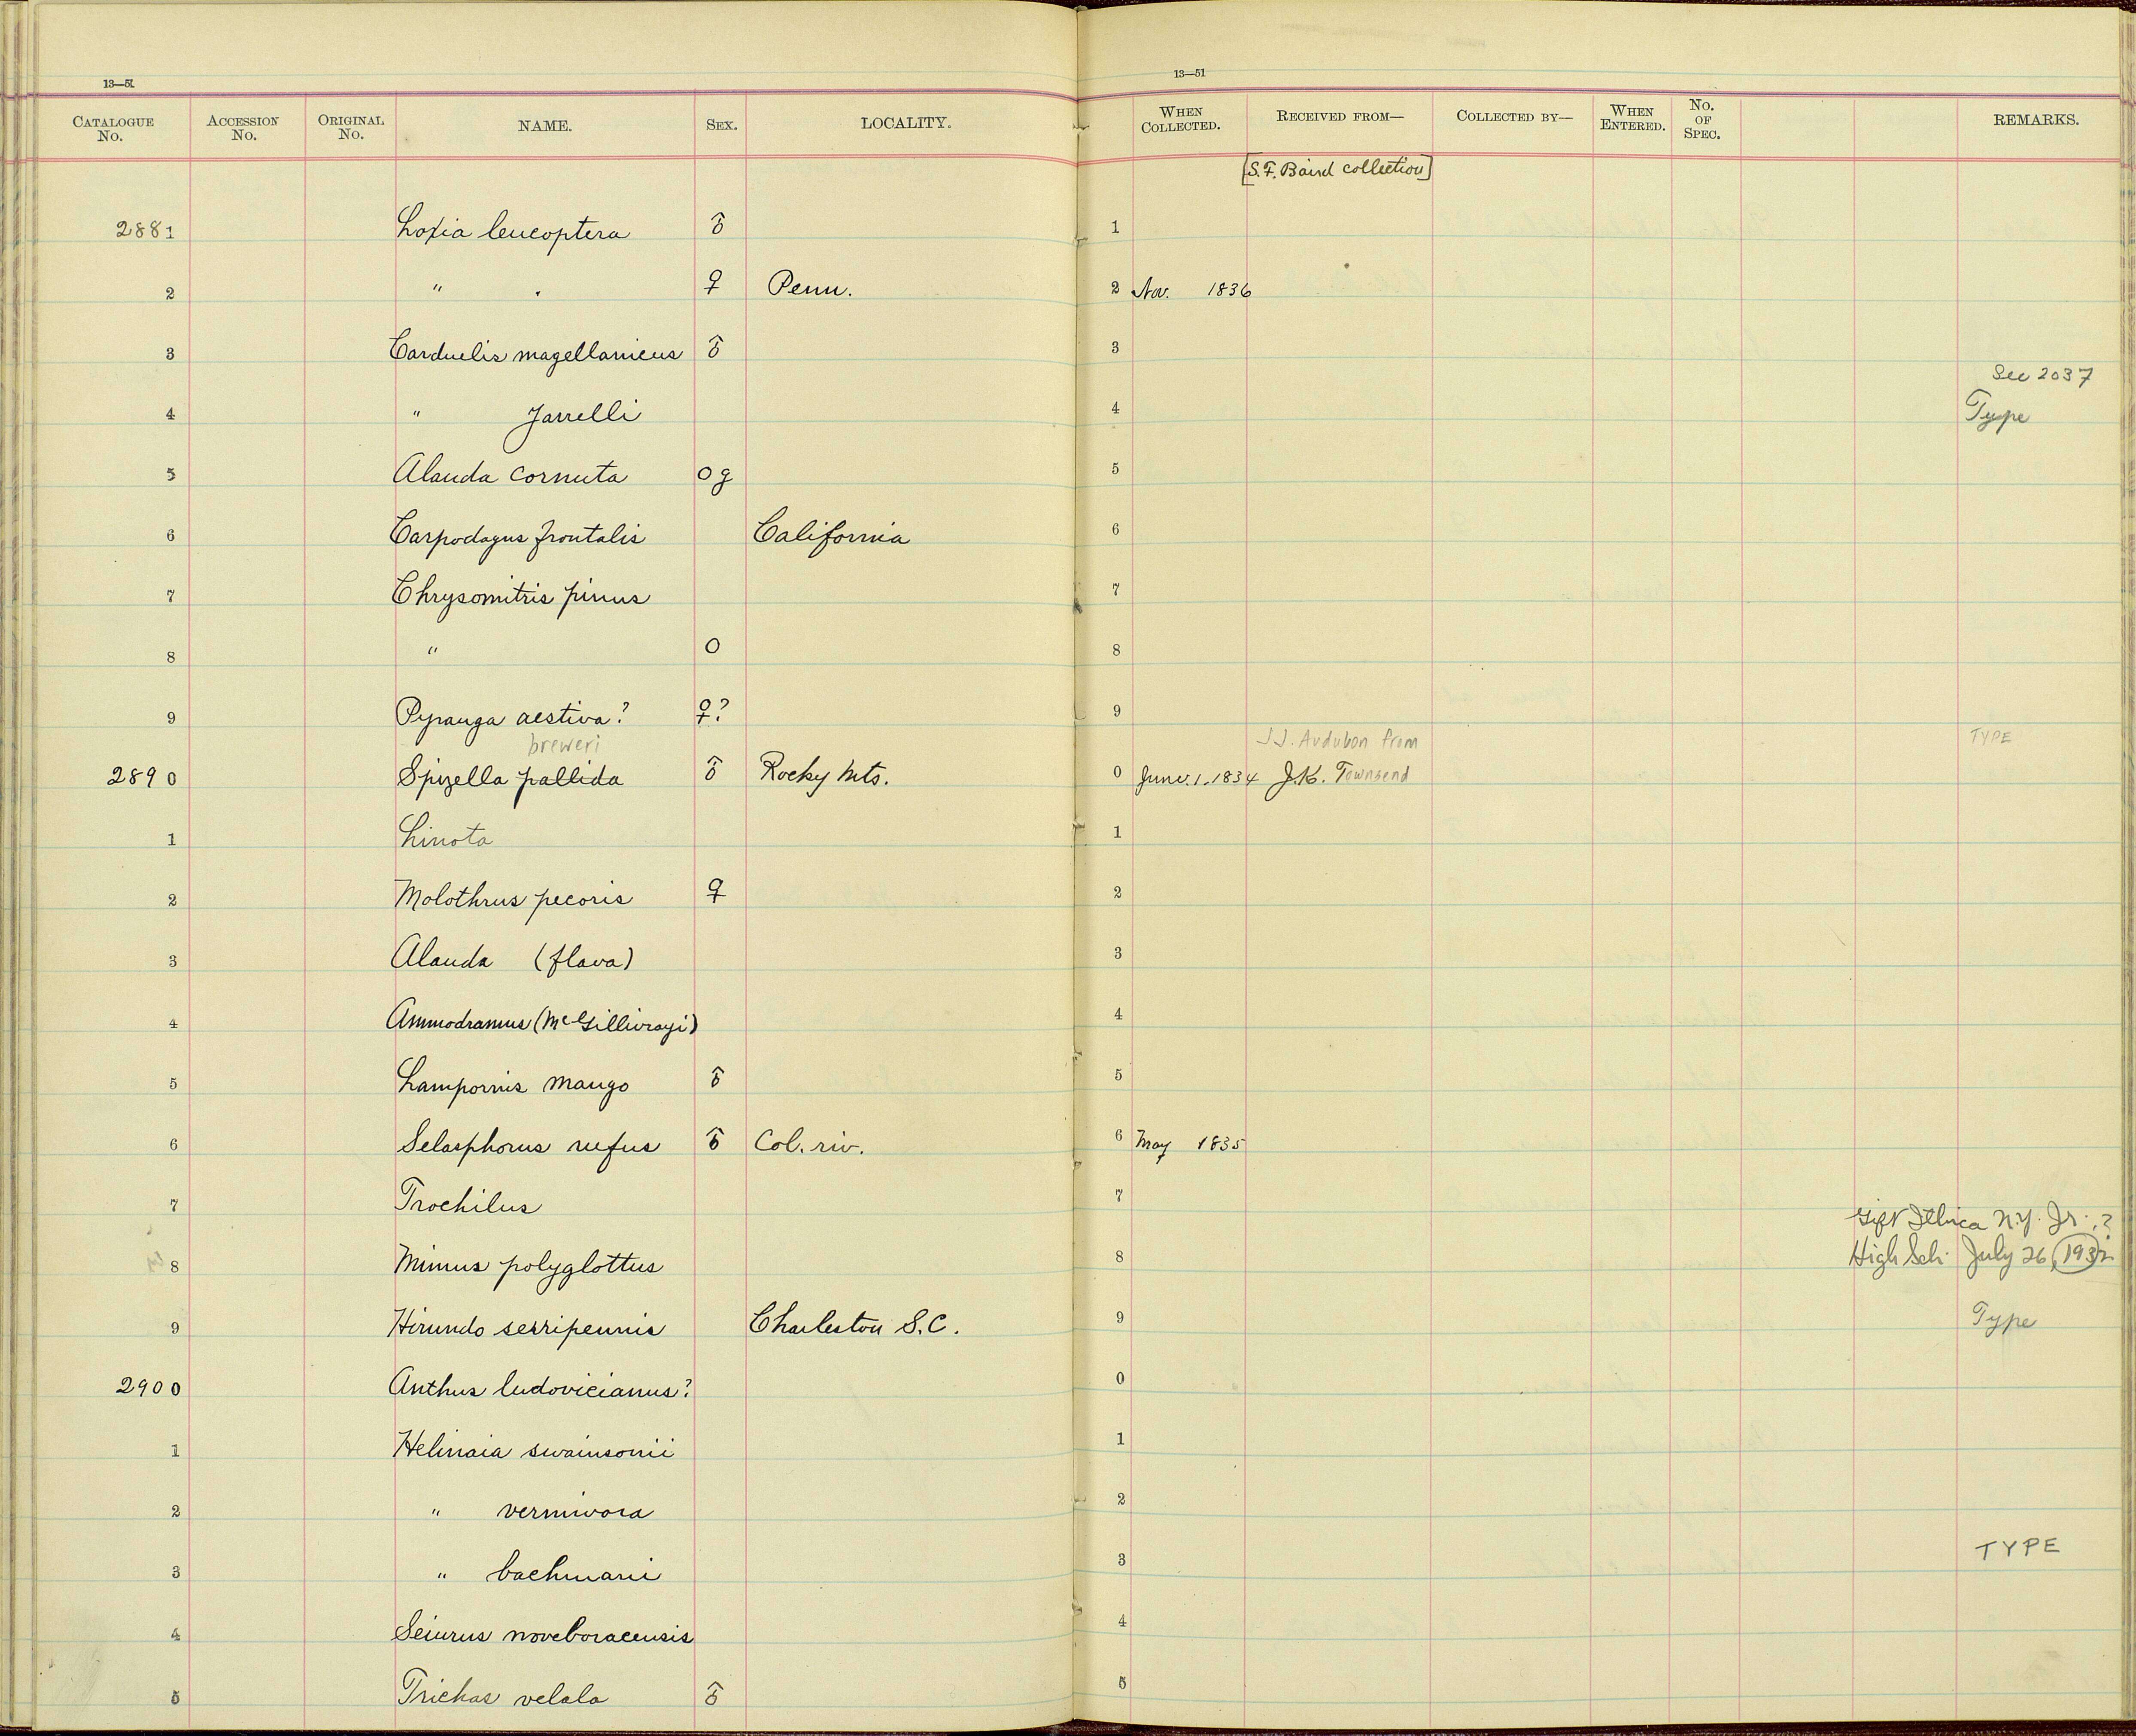 13—51
13—51
CATALOGUE No. ACCESSION No. ORIGINAL No. NAME. SEX. LOCALITY. WHEN COLLECTED. RECEIVED FROM— COLLECTED BY— WHEN ENTERED. No. OF SPEC. REMARKS.
[S. F. Baird collection]
2881 Loxia leucoptera ♂ 1
2 " " ♀ Penn. 2 Nov. 1836
3 Carduelis magellanicus ♂ 3
See 2037
4 " Yarrelli 4 Type
5 Alauda cornuta O 5
6 Carpodagus frontalis California 6
7 Chrysomitris pinus 7
8 " O 8
9 Pyranga aestiva? ♀? 9
breweri J.J. Audubon from TYPE
2890 Spizella pallida ♂ Rocky Mts. 0 June. 1. 1834 J.K. Townsend
1 Linota 1
2 Molothrus pecoris ♀ 2
3 Alauda (flava) 3
4 Ammodramus (McGillivrayi) 4
5 Lampornis mango ♂ 5
6 Selasphorus rufus ♂ Col. riv. 6 May 1835
7 Trochilus 7
Gift Ithica N.Y. Jr. ?
8 Mimus polyglottus 8 High Sch. July 26, 1932
9 Hirundo serripennis Charleston S.C. 9 Type
2900 Anthus ludovicianus? 0
1 Helinaia swainsonii 1
2 " vermivora 2
3 " bachmani 3 TYPE
4 Seiurus noveboracensis 4
5 Trichas velala ♂ 5